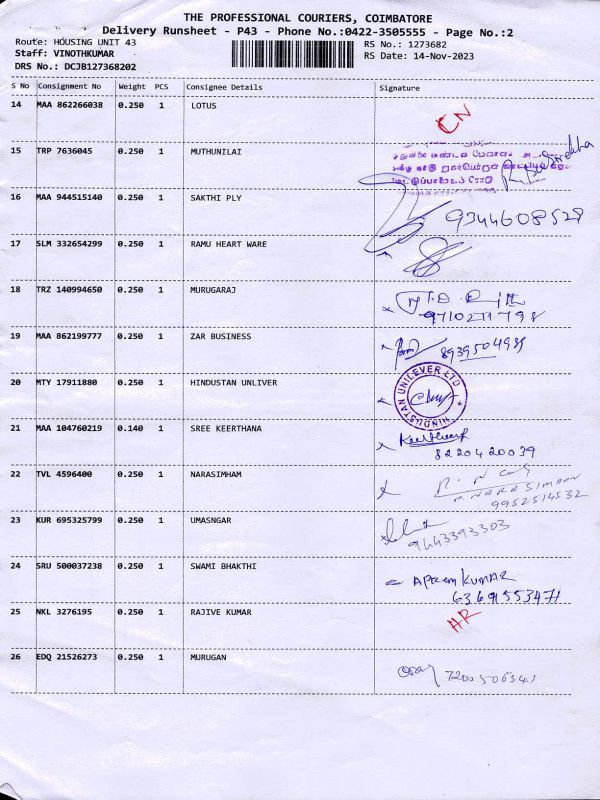 THE PROFESSIONAL COURIERS, COIMBATORE
Delivery Runsheet - P43 - Phone No.:0422-3505555 - Page No.:2
Route: HOUSING UNIT 43 RS No.: 1273682
Staff: VINOTHKUMAR RS Date: 14-Nov-2023
DRS No.: DCJB127368202
S No Consignment No Weight PCS Consignee Details Signature
14 MAA 862266038 0.250 1 LOTUS CN
15 TRP 7636045 0.250 1 MUTHUNILAI
16 MAA 944515140 0.250 1 SAKTHI PLY 9344608528
17 SLM 332654299 0.250 1 RAMU HEART WARE
18 TRZ 140994650 0.250 1 MURUGARAJ
9710271798
19 MAA 862199777 0.250 1 ZAR BUSINESS
20 MTY 17911880 0.250 1 HINDUSTAN UNLIVER HINDUSTAN UNILEVER LTD
21 MAA 104760219 0.140 1 SREE KEERTHANA Keerthana
8220420039
22 TVL 4596400 0.250 1 NARASIMHAM
9952514532
23 KUR 695325799 0.250 1 UMASNGAR 9443393303
24 SRU 500037238 0.250 1 SWAMI BHAKTHI APREM KUMAR
63691553471
25 NKL 3276195 0.250 1 RAJIVE KUMAR
26 EDQ 21526273 0.250 1 MURUGAN 7200506541